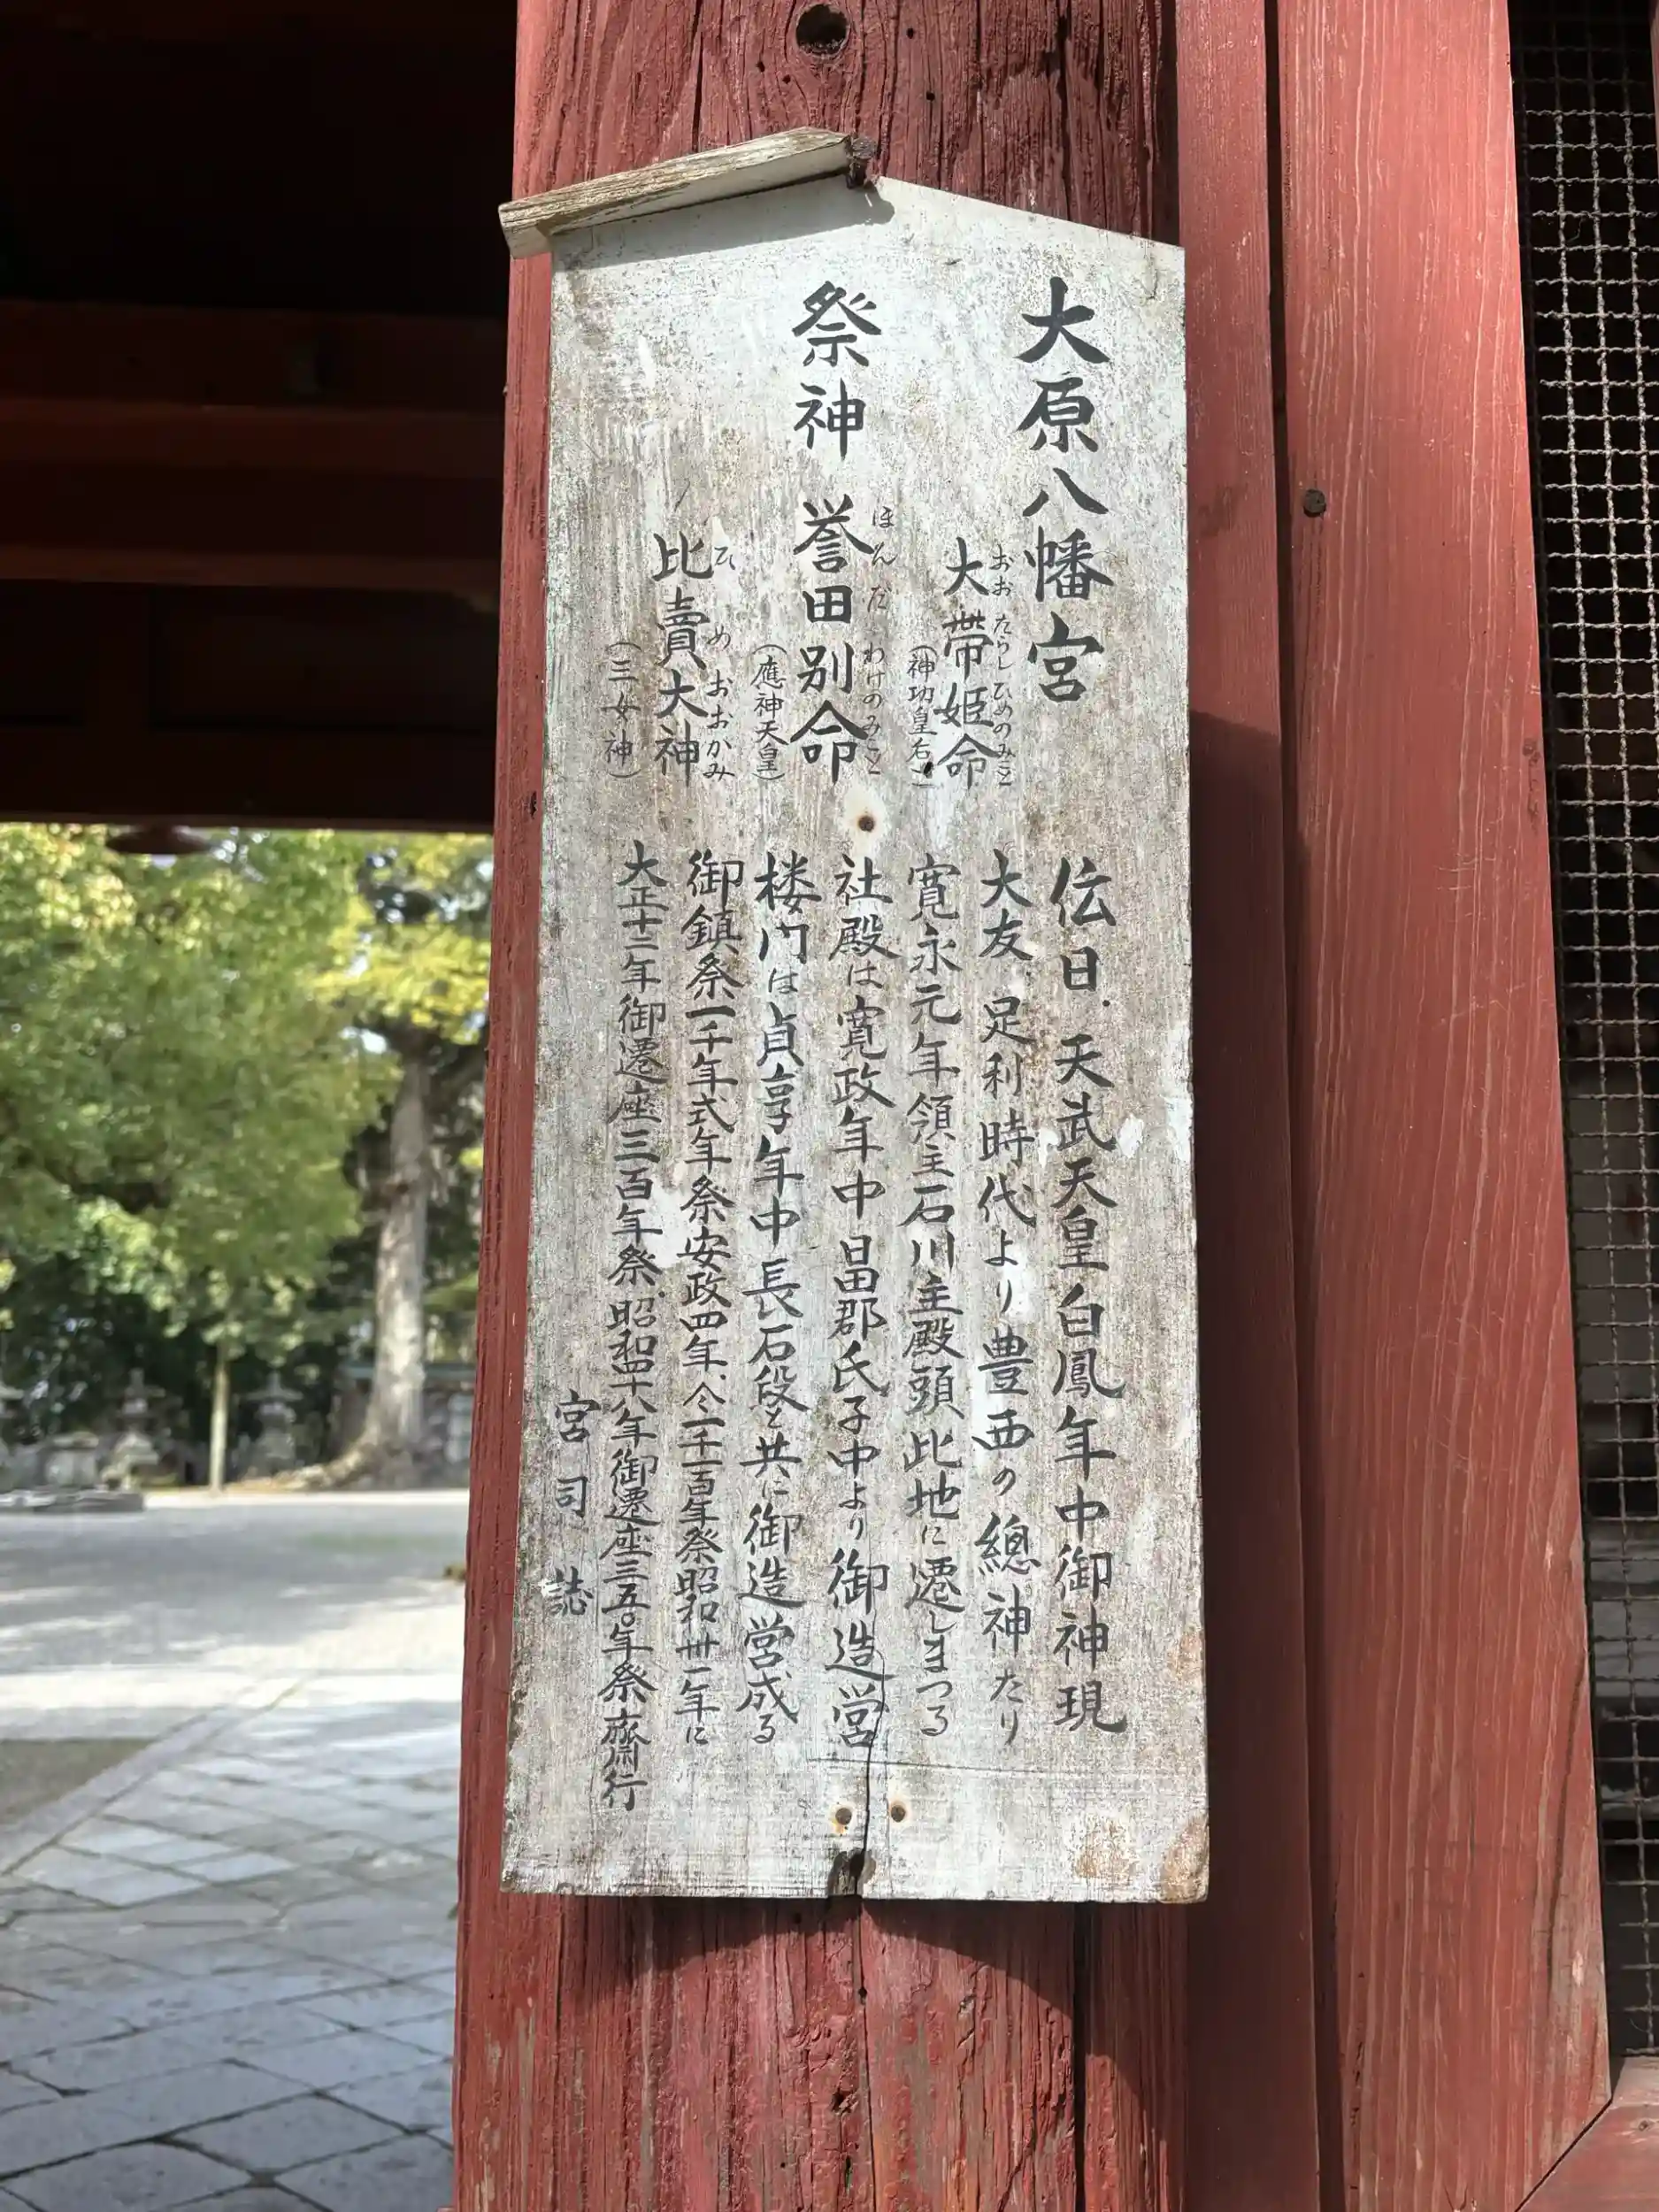 大原八幡宮
おおたらしひめのみこと
大帯姫命
(神功皇后)
ほんだわけのみこと
祭神 誉田別命
(應神天皇)
ひめおおかみ
比賣大神
(三女神)
伝日.天武天皇白鳳年中御神現
大友.足利時代より豊西の總神たり
寛永元年領主石川主殿頭此地に遷しまつる
社殿は寛政年中日田郡氏子中より御造営
楼門は貞享年中長石段と共に御造営成る
御鎮祭一千年式年祭安政四年、今一千一百年祭昭和卅一年に
大正十二年御遷座三百年祭.昭和四十八年御遷座三五〇年祭齋行
宮司誌